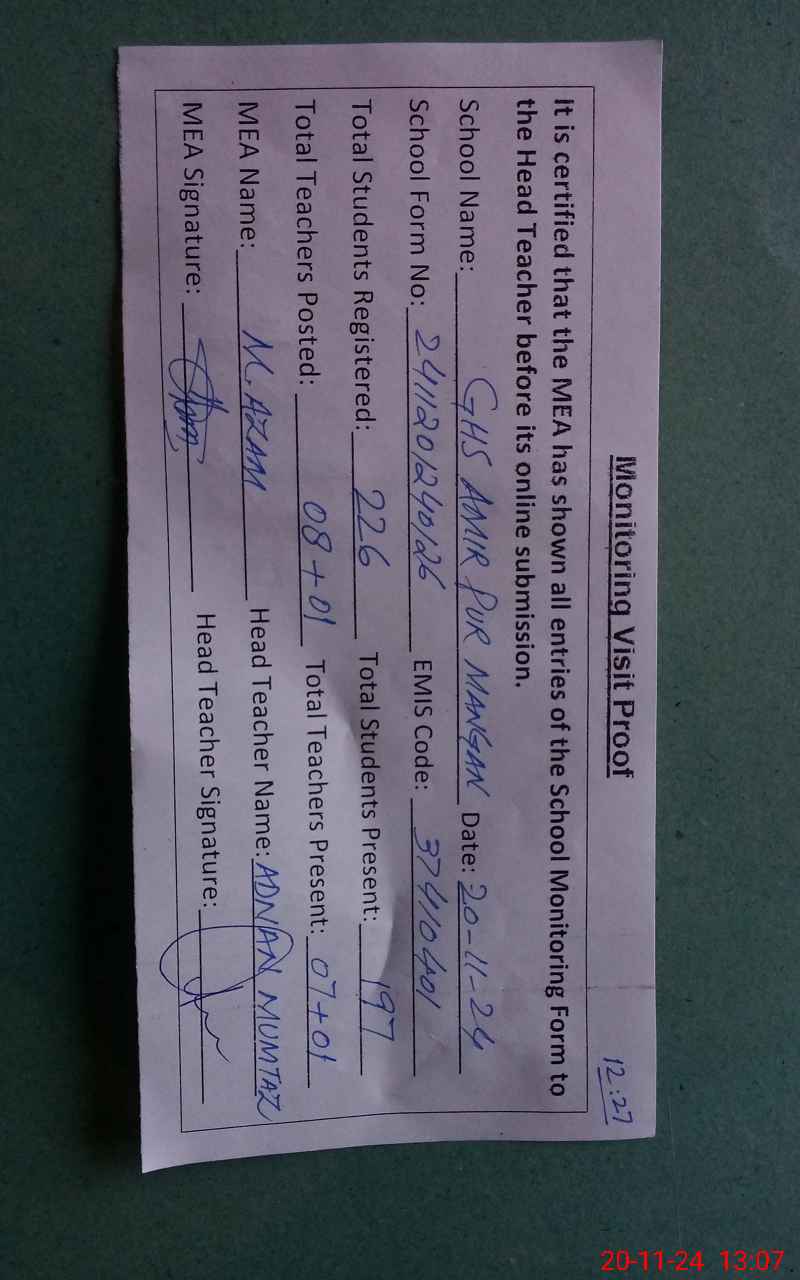 12:27
Monitoring Visit Proof
It is certified that the MEA has shown all entries of the School Monitoring Form to
the Head Teacher before its online submission.
School Name: GHS AMIR PUR MANGAN Date: 20-11-24
School Form No: 241120124026 EMIS Code: 37410401
Total Students Registered: 226 Total Students Present: 197
Total Teachers Posted: 08+01 Total Teachers Present: 07+01
MEA Name: M. AZAM Head Teacher Name: ADNAN MUMTAZ
MEA Signature: Head Teacher Signature:
20-11-24 13:07